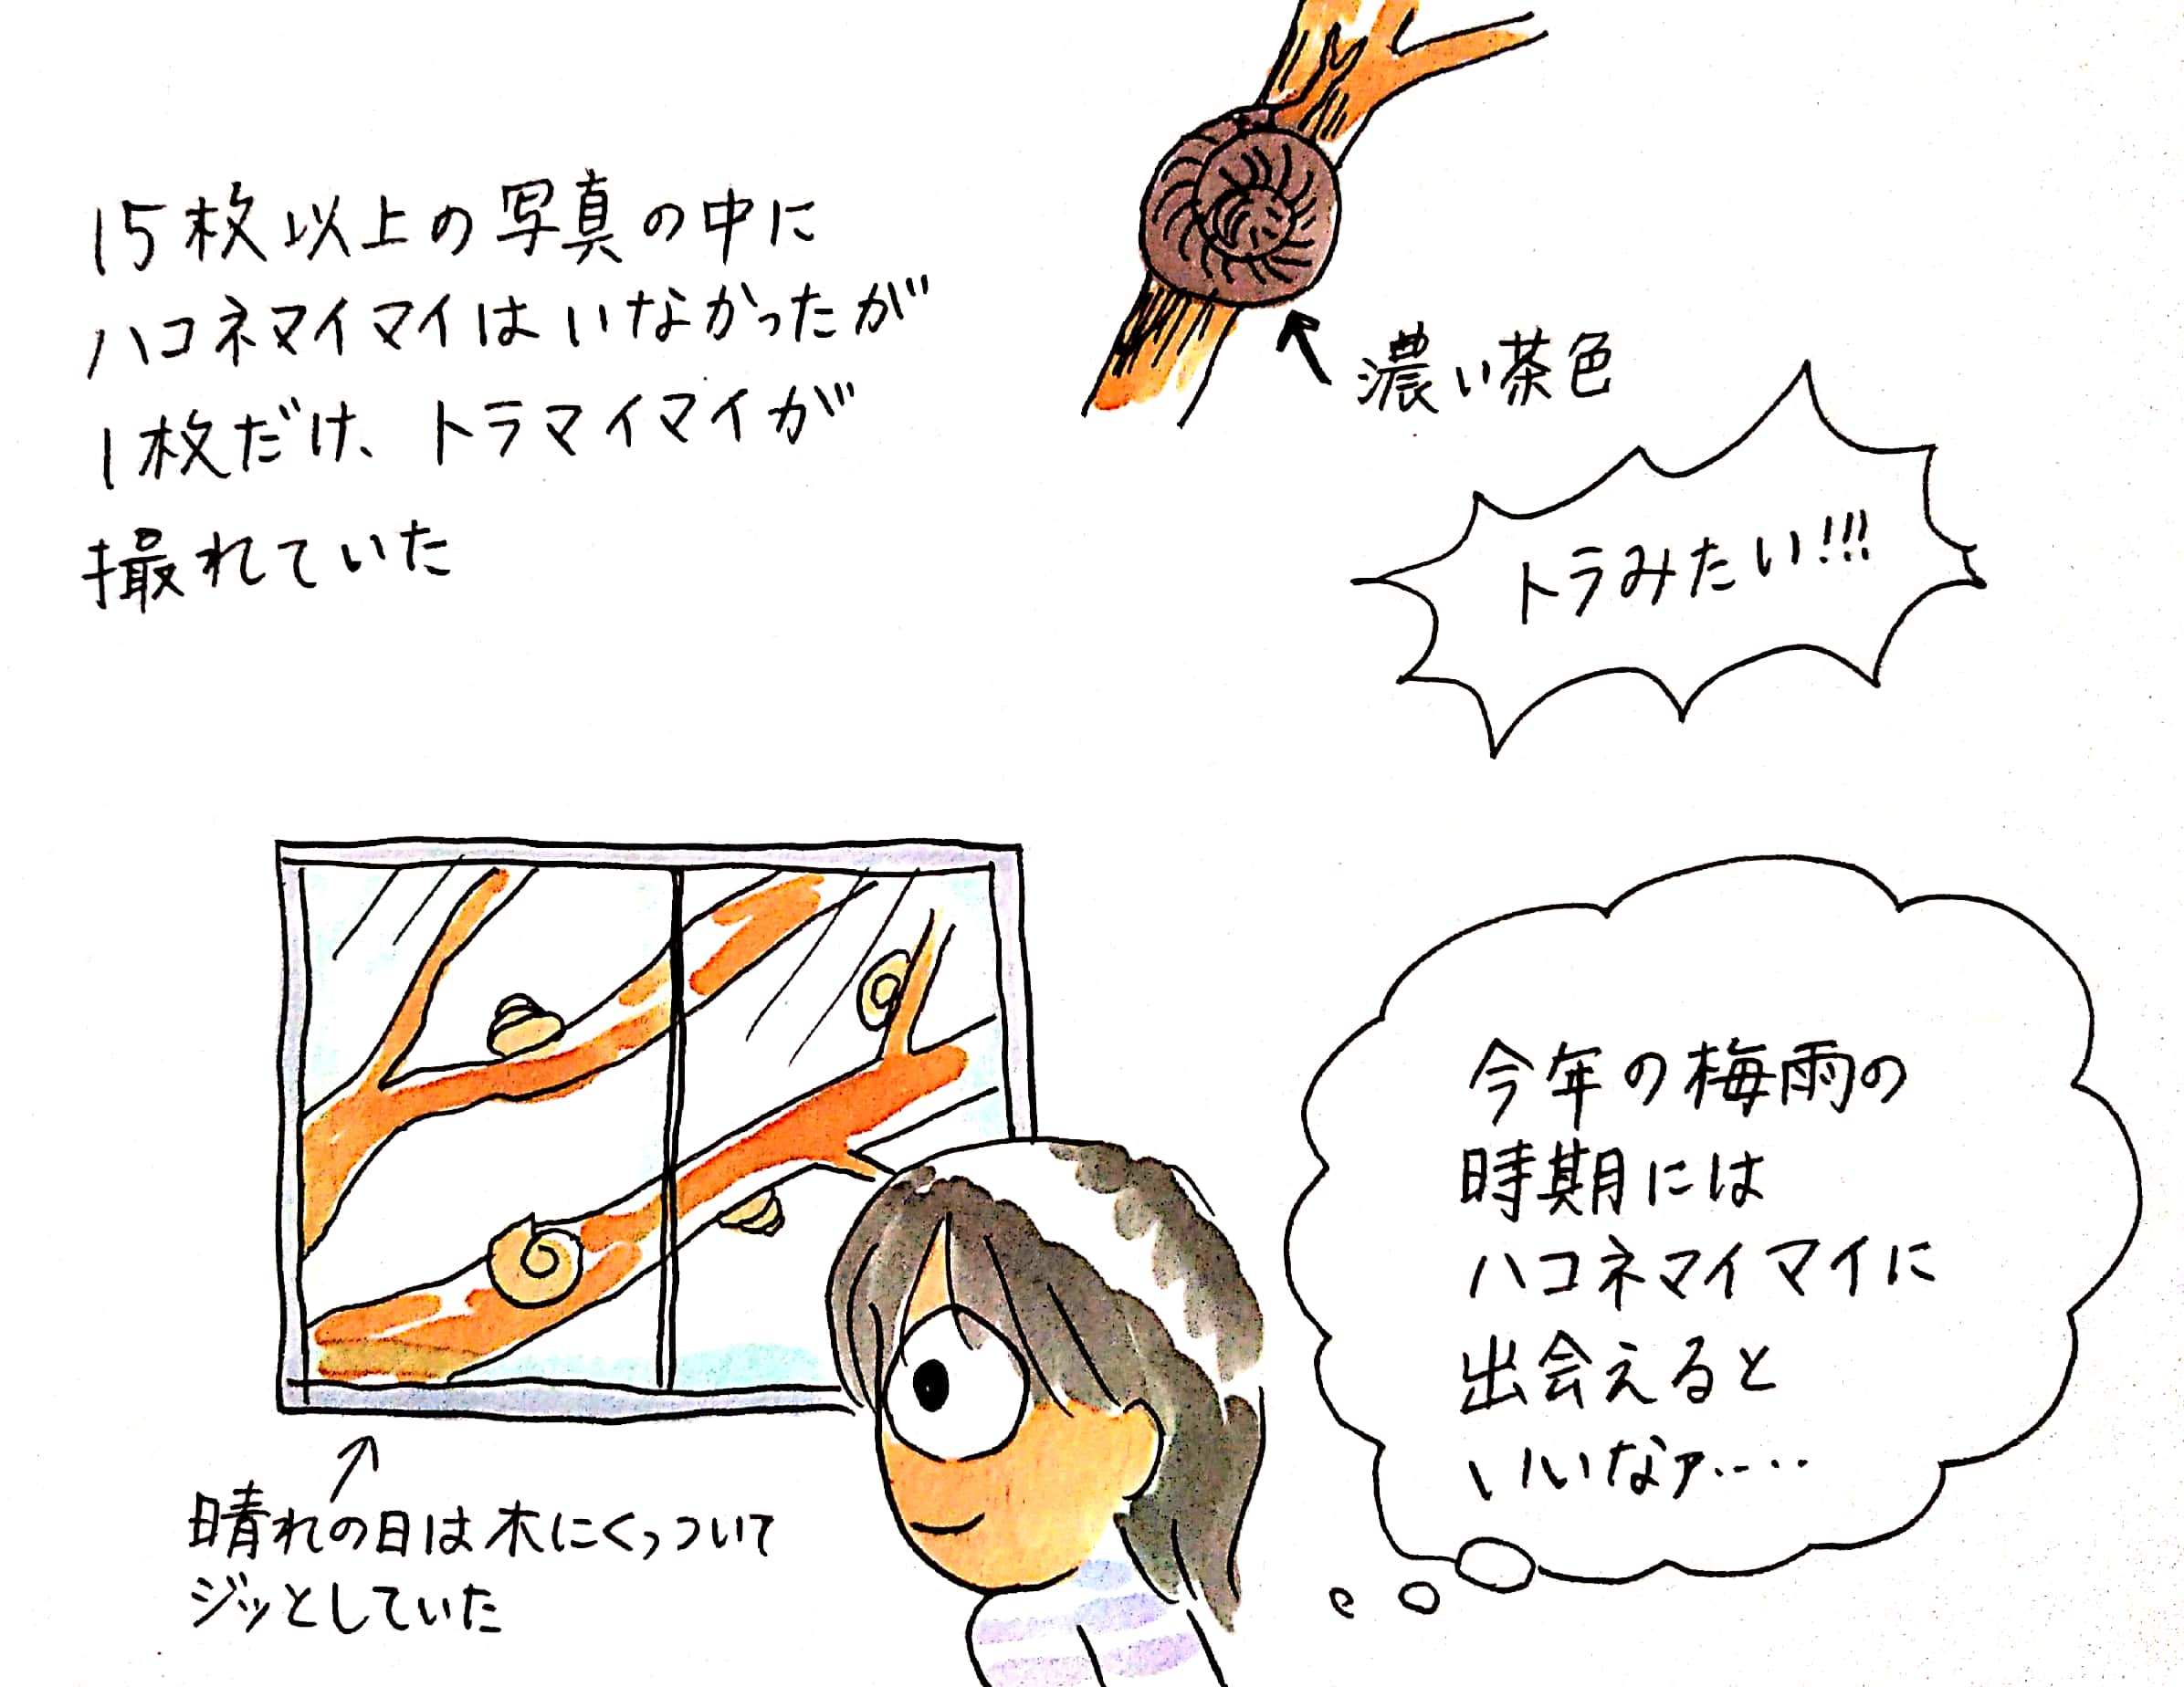 15枚以上の写真の中に
ハコネマイマイはいなかったが
1枚だけ、トラマイマイが
撮れていた
濃い茶色
トラみたい!!!
今年の梅雨の
時期には
ハコネマイマイに
出会えると
いいなァ.....
晴れの日は木にくっついて
ジッとしていた